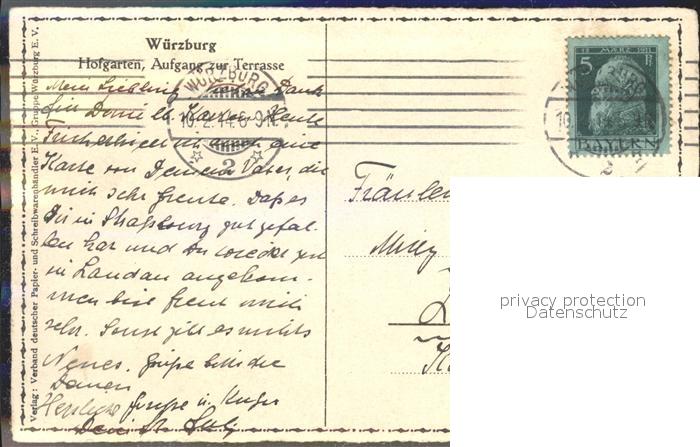 Würzburg
Hofgarten, Aufgang zur Terrasse
Mein Liebling Dank
für Deine lb. Karten. Heute
eine
Karte von Deinem Vater, die
mich sehr freute. Daß es
Dir in Straßburg gut gefal-
len hat und Du wieder gut
in Landau angekom-
men bist freut mich
sehr. Sonst gibt es nichts
Neues. Grüße bitte die
Damen
Herzliche Grüße u. Kuße
Dein
Verlag: Verband deutscher Papier- und Schreibwarenhändler E. V., Gruppe Würzburg E. V.
WÜRZBURG
10.2.14.8-9N.
2
12. MÄRZ 1911
5 Pf
BAYERN
10
2
Fräulein
privacy protection
Datenschutz